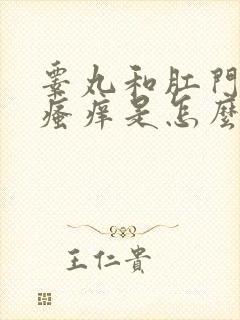 睾丸和肛門
瘙痒是怎麼
王仁貴